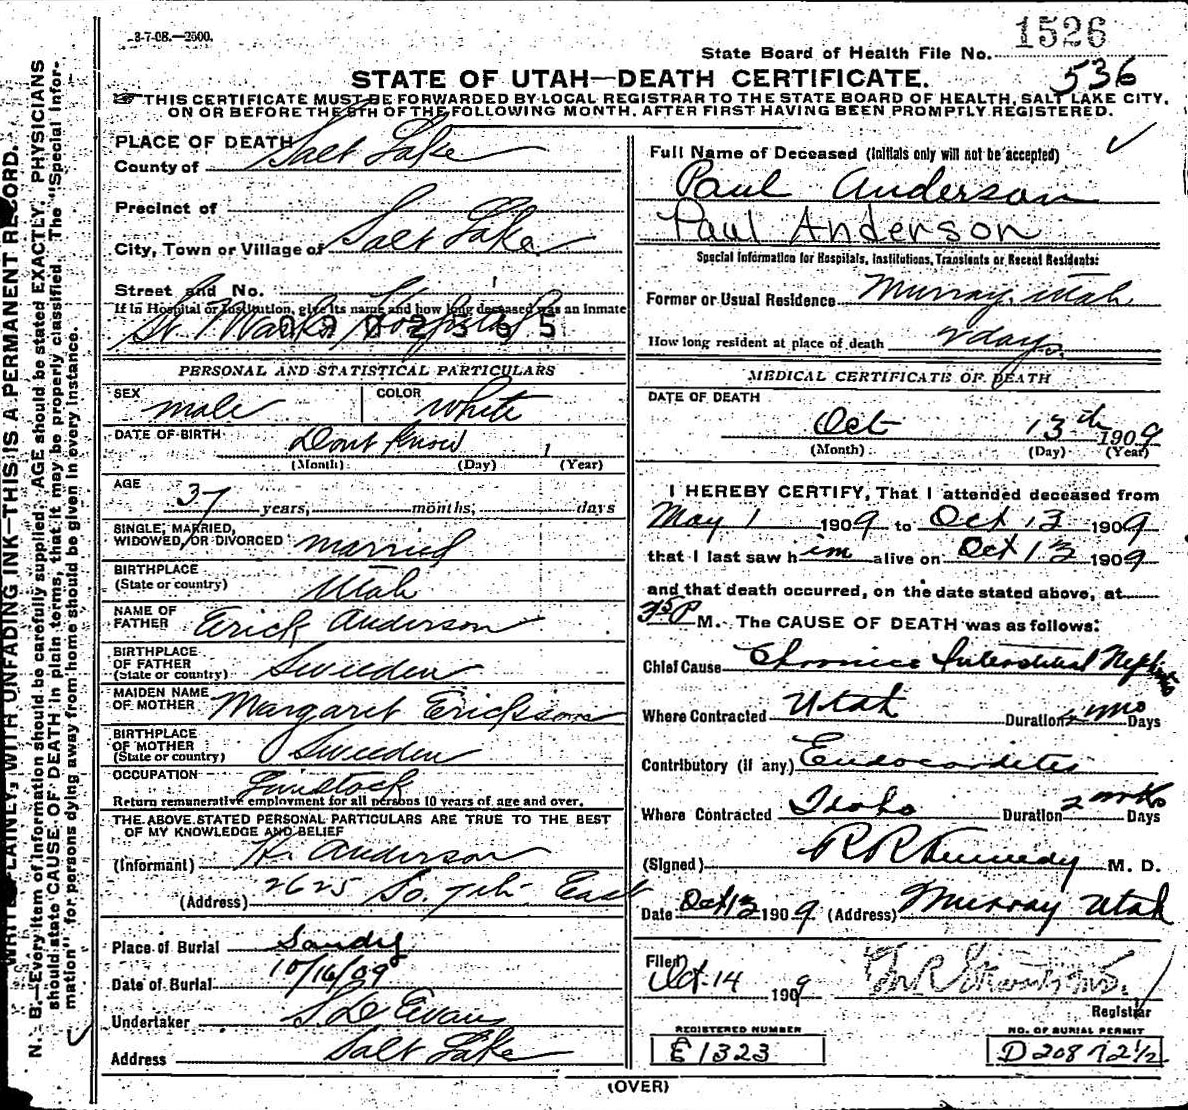 3-7-08.—2500.
1526
State Board of Health File No.
536
STATE OF UTAH—DEATH CERTIFICATE.
☞ THIS CERTIFICATE MUST BE FORWARDED BY LOCAL REGISTRAR TO THE STATE BOARD OF HEALTH, SALT LAKE CITY,
ON OR BEFORE THE 5TH OF THE FOLLOWING MONTH, AFTER FIRST HAVING BEEN PROMPTLY REGISTERED.
WRITE PLAINLY, WITH UNFADING INK—THIS IS A PERMANENT RECORD.
N. B.—Every item of information should be carefully supplied. AGE should be stated EXACTLY. PHYSICIANS
should state CAUSE OF DEATH in plain terms, that it may be properly classified. The "Special Infor-
mation" for persons dying away from home should be given in every instance.
PLACE OF DEATH
County of Salt Lake
Precinct of
City, Town or Village of Salt Lake
Street and No.
If in Hospital or Institution, give its name and how long deceased was an inmate
St. Marks Hospital
PERSONAL AND STATISTICAL PARTICULARS
SEX male COLOR white
DATE OF BIRTH Dont Know 1
(Month) (Day) (Year)
AGE 37 years, months, days
SINGLE, MARRIED,
WIDOWED, OR DIVORCED married
BIRTHPLACE
(State or country) Utah
NAME OF
FATHER Erick Anderson
BIRTHPLACE
OF FATHER
(State or country) Sweeden
MAIDEN NAME
OF MOTHER Margaret Erickson
BIRTHPLACE
OF MOTHER
(State or country) Sweeden
OCCUPATION
Return remunerative employment for all persons 10 years of age and over.
THE ABOVE STATED PERSONAL PARTICULARS ARE TRUE TO THE BEST
OF MY KNOWLEDGE AND BELIEF
(Informant) H. Anderson
(Address) 2625 So. 7th East
Place of Burial Sandy
Date of Burial 10/16/09
Undertaker S. D. Evans
Address Salt Lake
Full Name of Deceased (Initials only will not be accepted)
Paul Anderson
Paul Anderson
Special Information for Hospitals, Institutions, Transients or Recent Residents:
Former or Usual Residence Murray, Utah
How long resident at place of death 2 days.
MEDICAL CERTIFICATE OF DEATH
DATE OF DEATH
Oct 13th 1909
(Month) (Day) (Year)
I HEREBY CERTIFY, That I attended deceased from
May 1 1909 to Oct 13 1909
that I last saw him alive on Oct 13 1909
and that death occurred, on the date stated above, at
M. The CAUSE OF DEATH was as follows:
Chief Cause Chronic Interstitial Nephritis
Where Contracted Utah Duration mo Days
Contributory (if any) Endocarditis
Where Contracted Idaho Duration 2 Days
(Signed) R R Kennedy M. D.
Date Oct 13 1909 (Address) Murray Utah
Filed
Oct. 14 1909
Registrar
REGISTERED NUMBER
E 1323
NO. OF BURIAL PERMIT
D 20872½
(OVER)